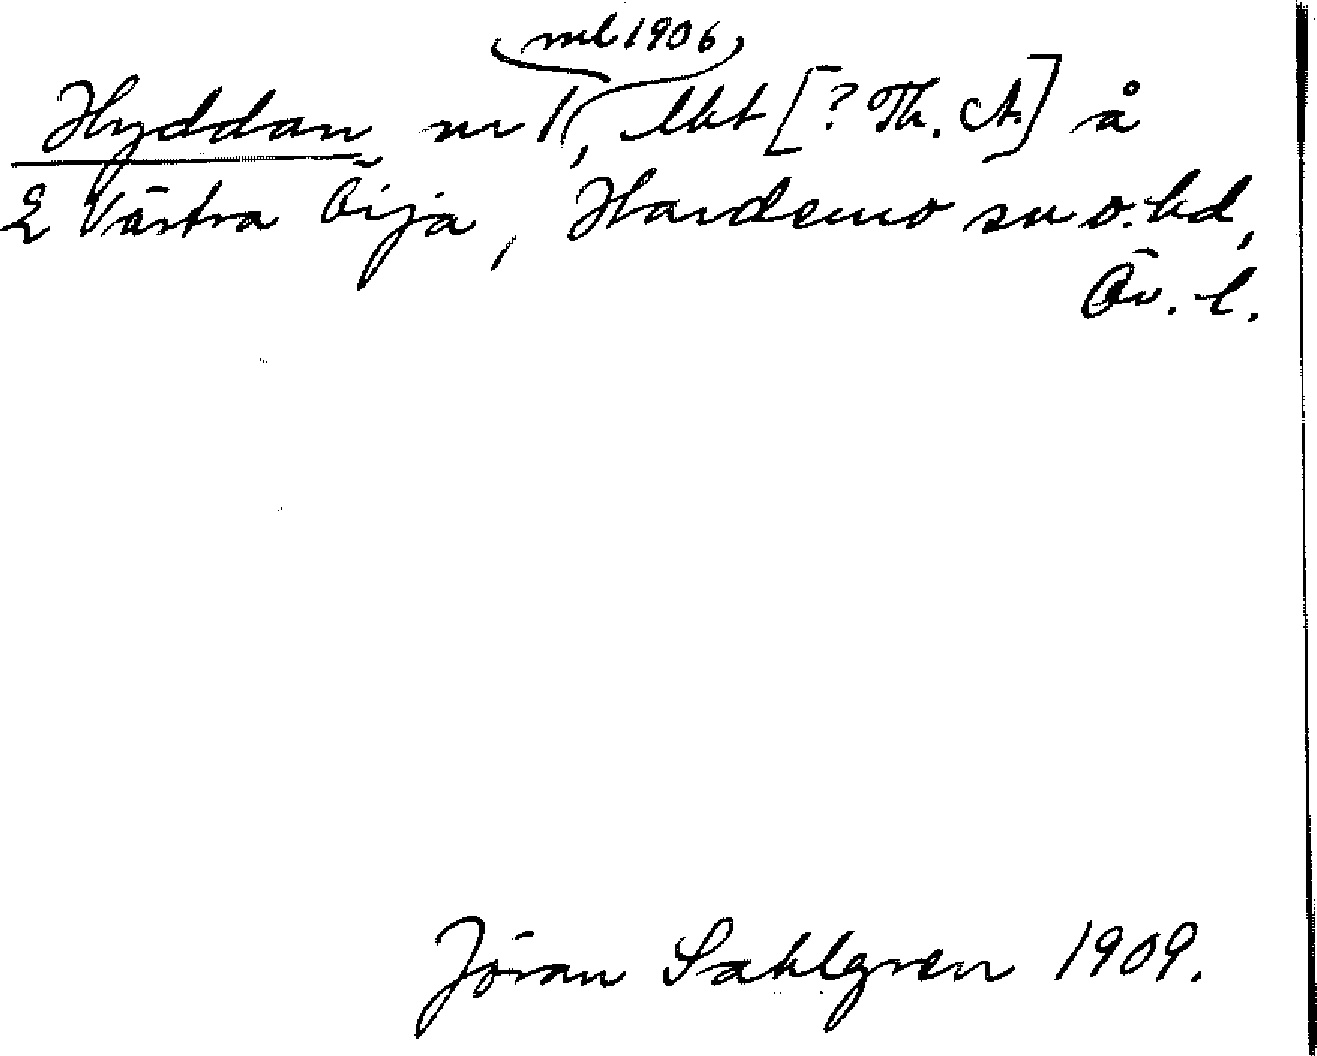 ml 1906
Hyddan nr 1, lht [? Th. A.] å
2 Västra Öija, Hardemo sn o. hd,
Öv. l.
Jöran Sahlgren 1909.